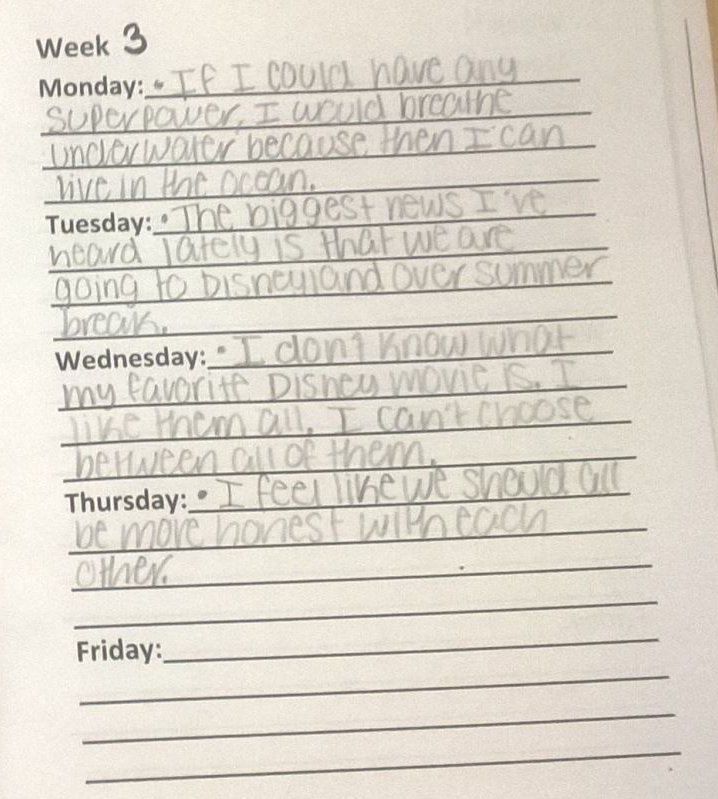 Week 3
Monday: • If I could have any
superpower, I would breathe
underwater because then I can
live in the ocean.
Tuesday: • The biggest news I've
heard lately is that we are
going to Disneyland over summer
break.
Wednesday: • I don't know what
my favorite Disney movie is. I
like them all. I can't choose
between all of them.
Thursday: • I feel like we should all
be more honest with each
other.
Friday: